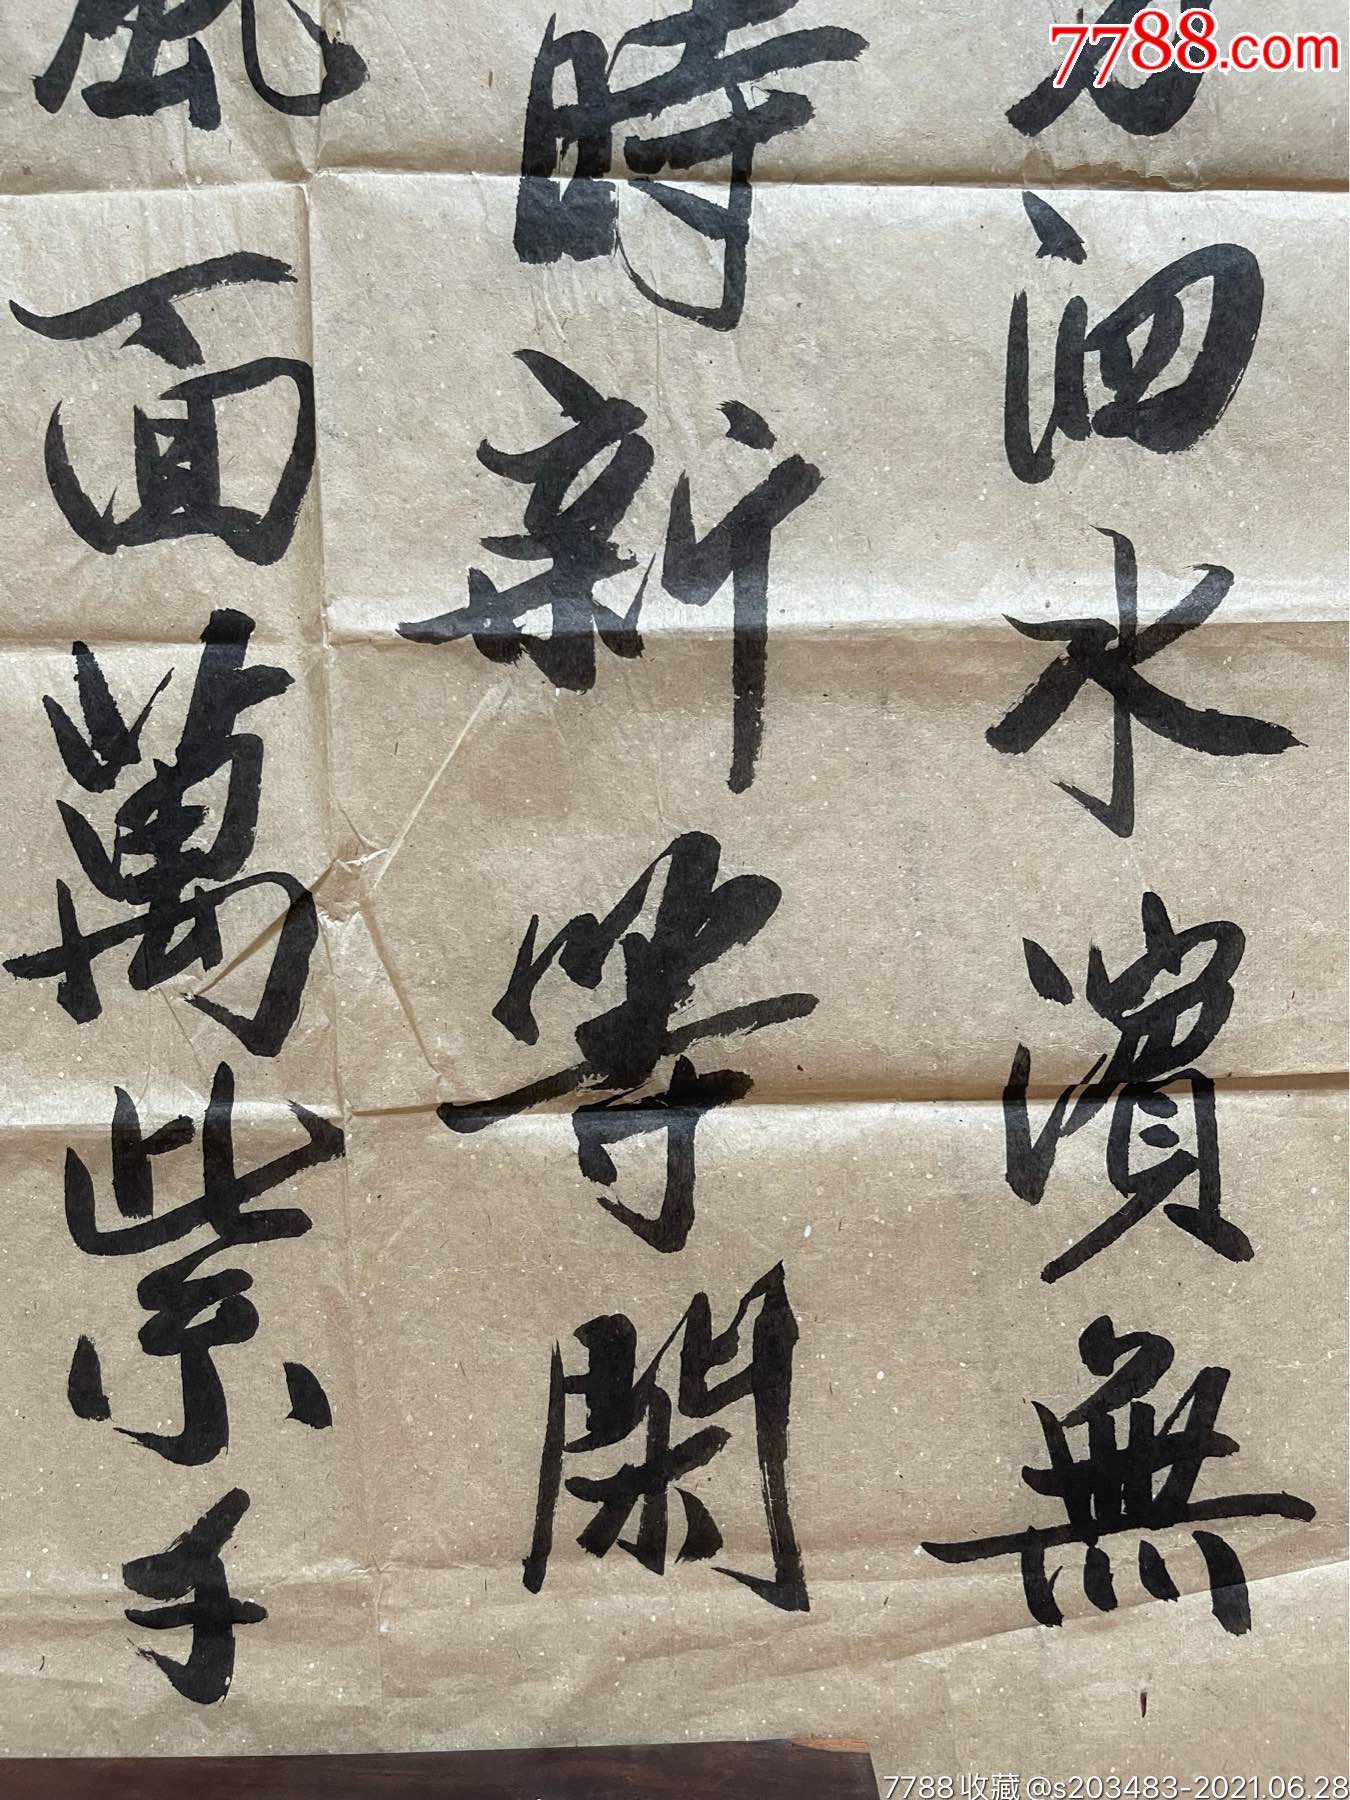 7788.com
芳泗水濱無
時新等閑
風面萬紫手
7788收藏@s203483-2021.06.28